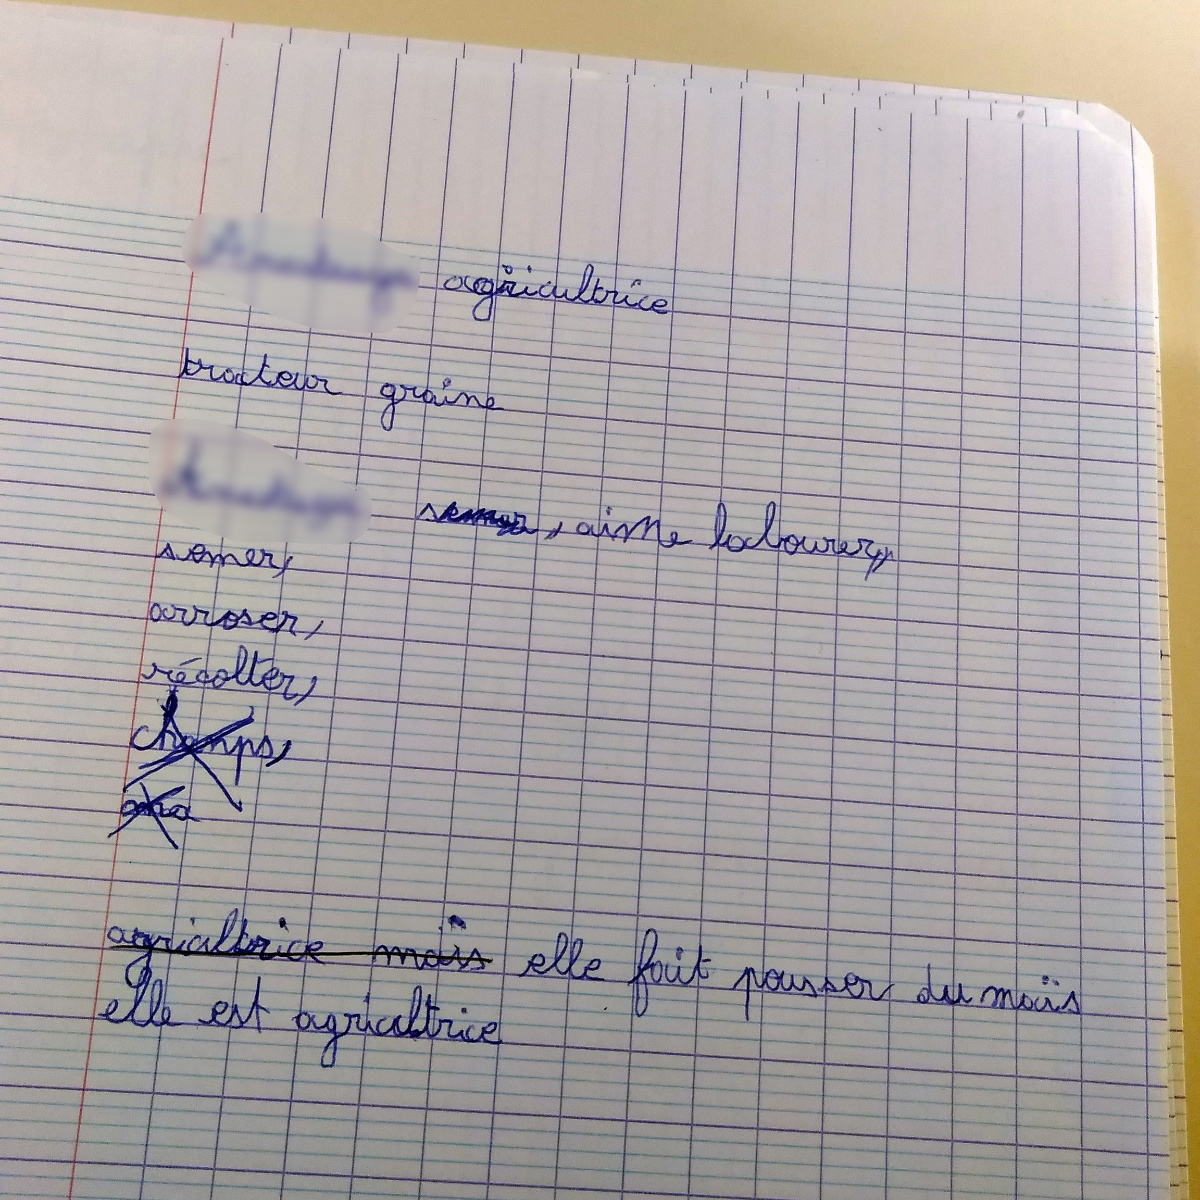 agricultrice
tracteur graine
, aime labourer,
semer,
arroser,
récolter,
champs,
agricultrice maïs elle fait pousser du maïs
elle est agricultrice